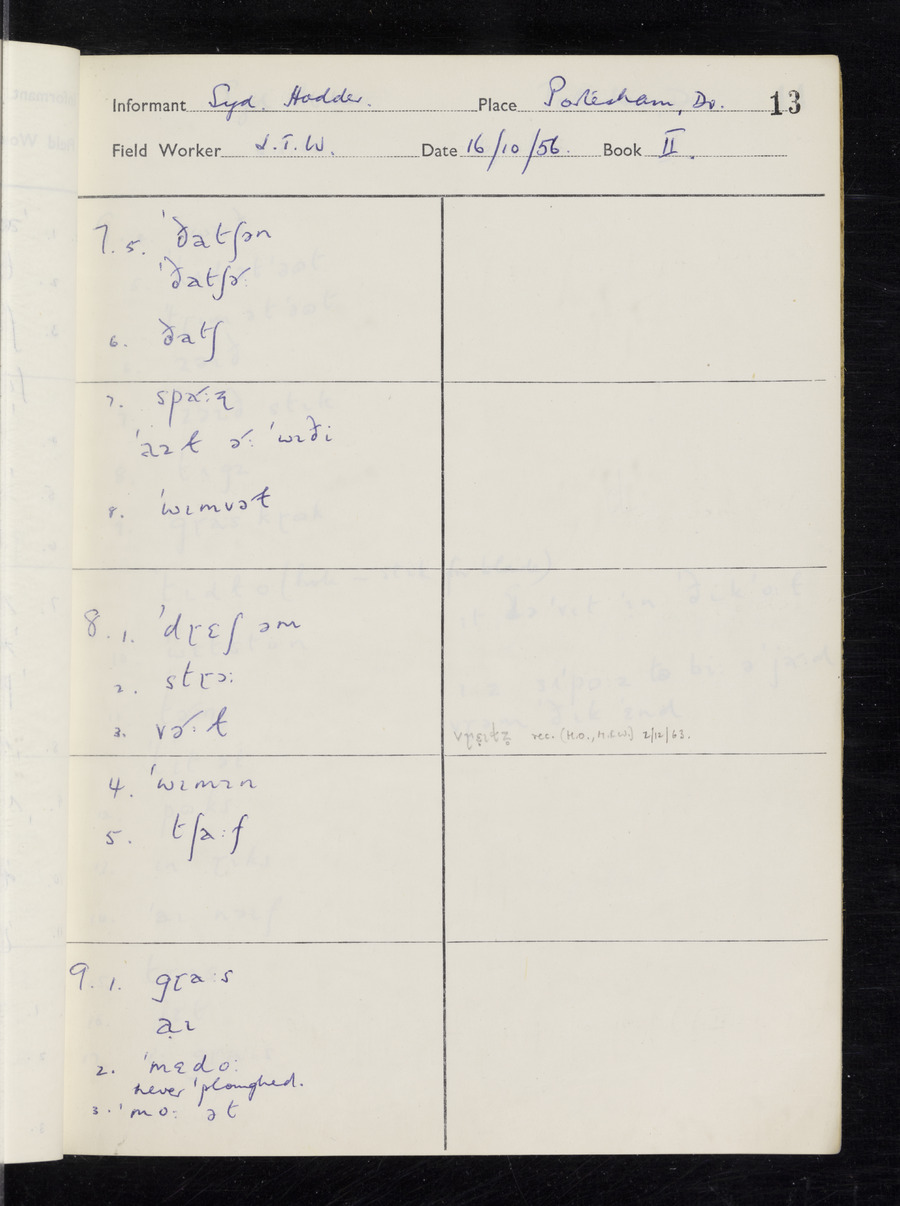 Informant Syd. Hodder. Place Portesham, Do. 13
Field Worker J.T.W. Date 16/10/56. Book II.
7. 5. ˈðatʃən
ˈðatʃɚː
6. ðatʃ
7. spɑ˞ːz̢
ˈaɪt ɚː ˈwɪði
8. ˈwɪmvət
8. 1. ˈdɽɛʃ əm
2. stɽɔː
3. vɚːt
rec. (H.O., M.F.W.) 2/12/63.
4. ˈwɪmɪn
5. tʃaːf
9. 1. gɽaːs
aɪ
2. ˈmɛdoː
never ˈploughed.
3. ˈmoː ət